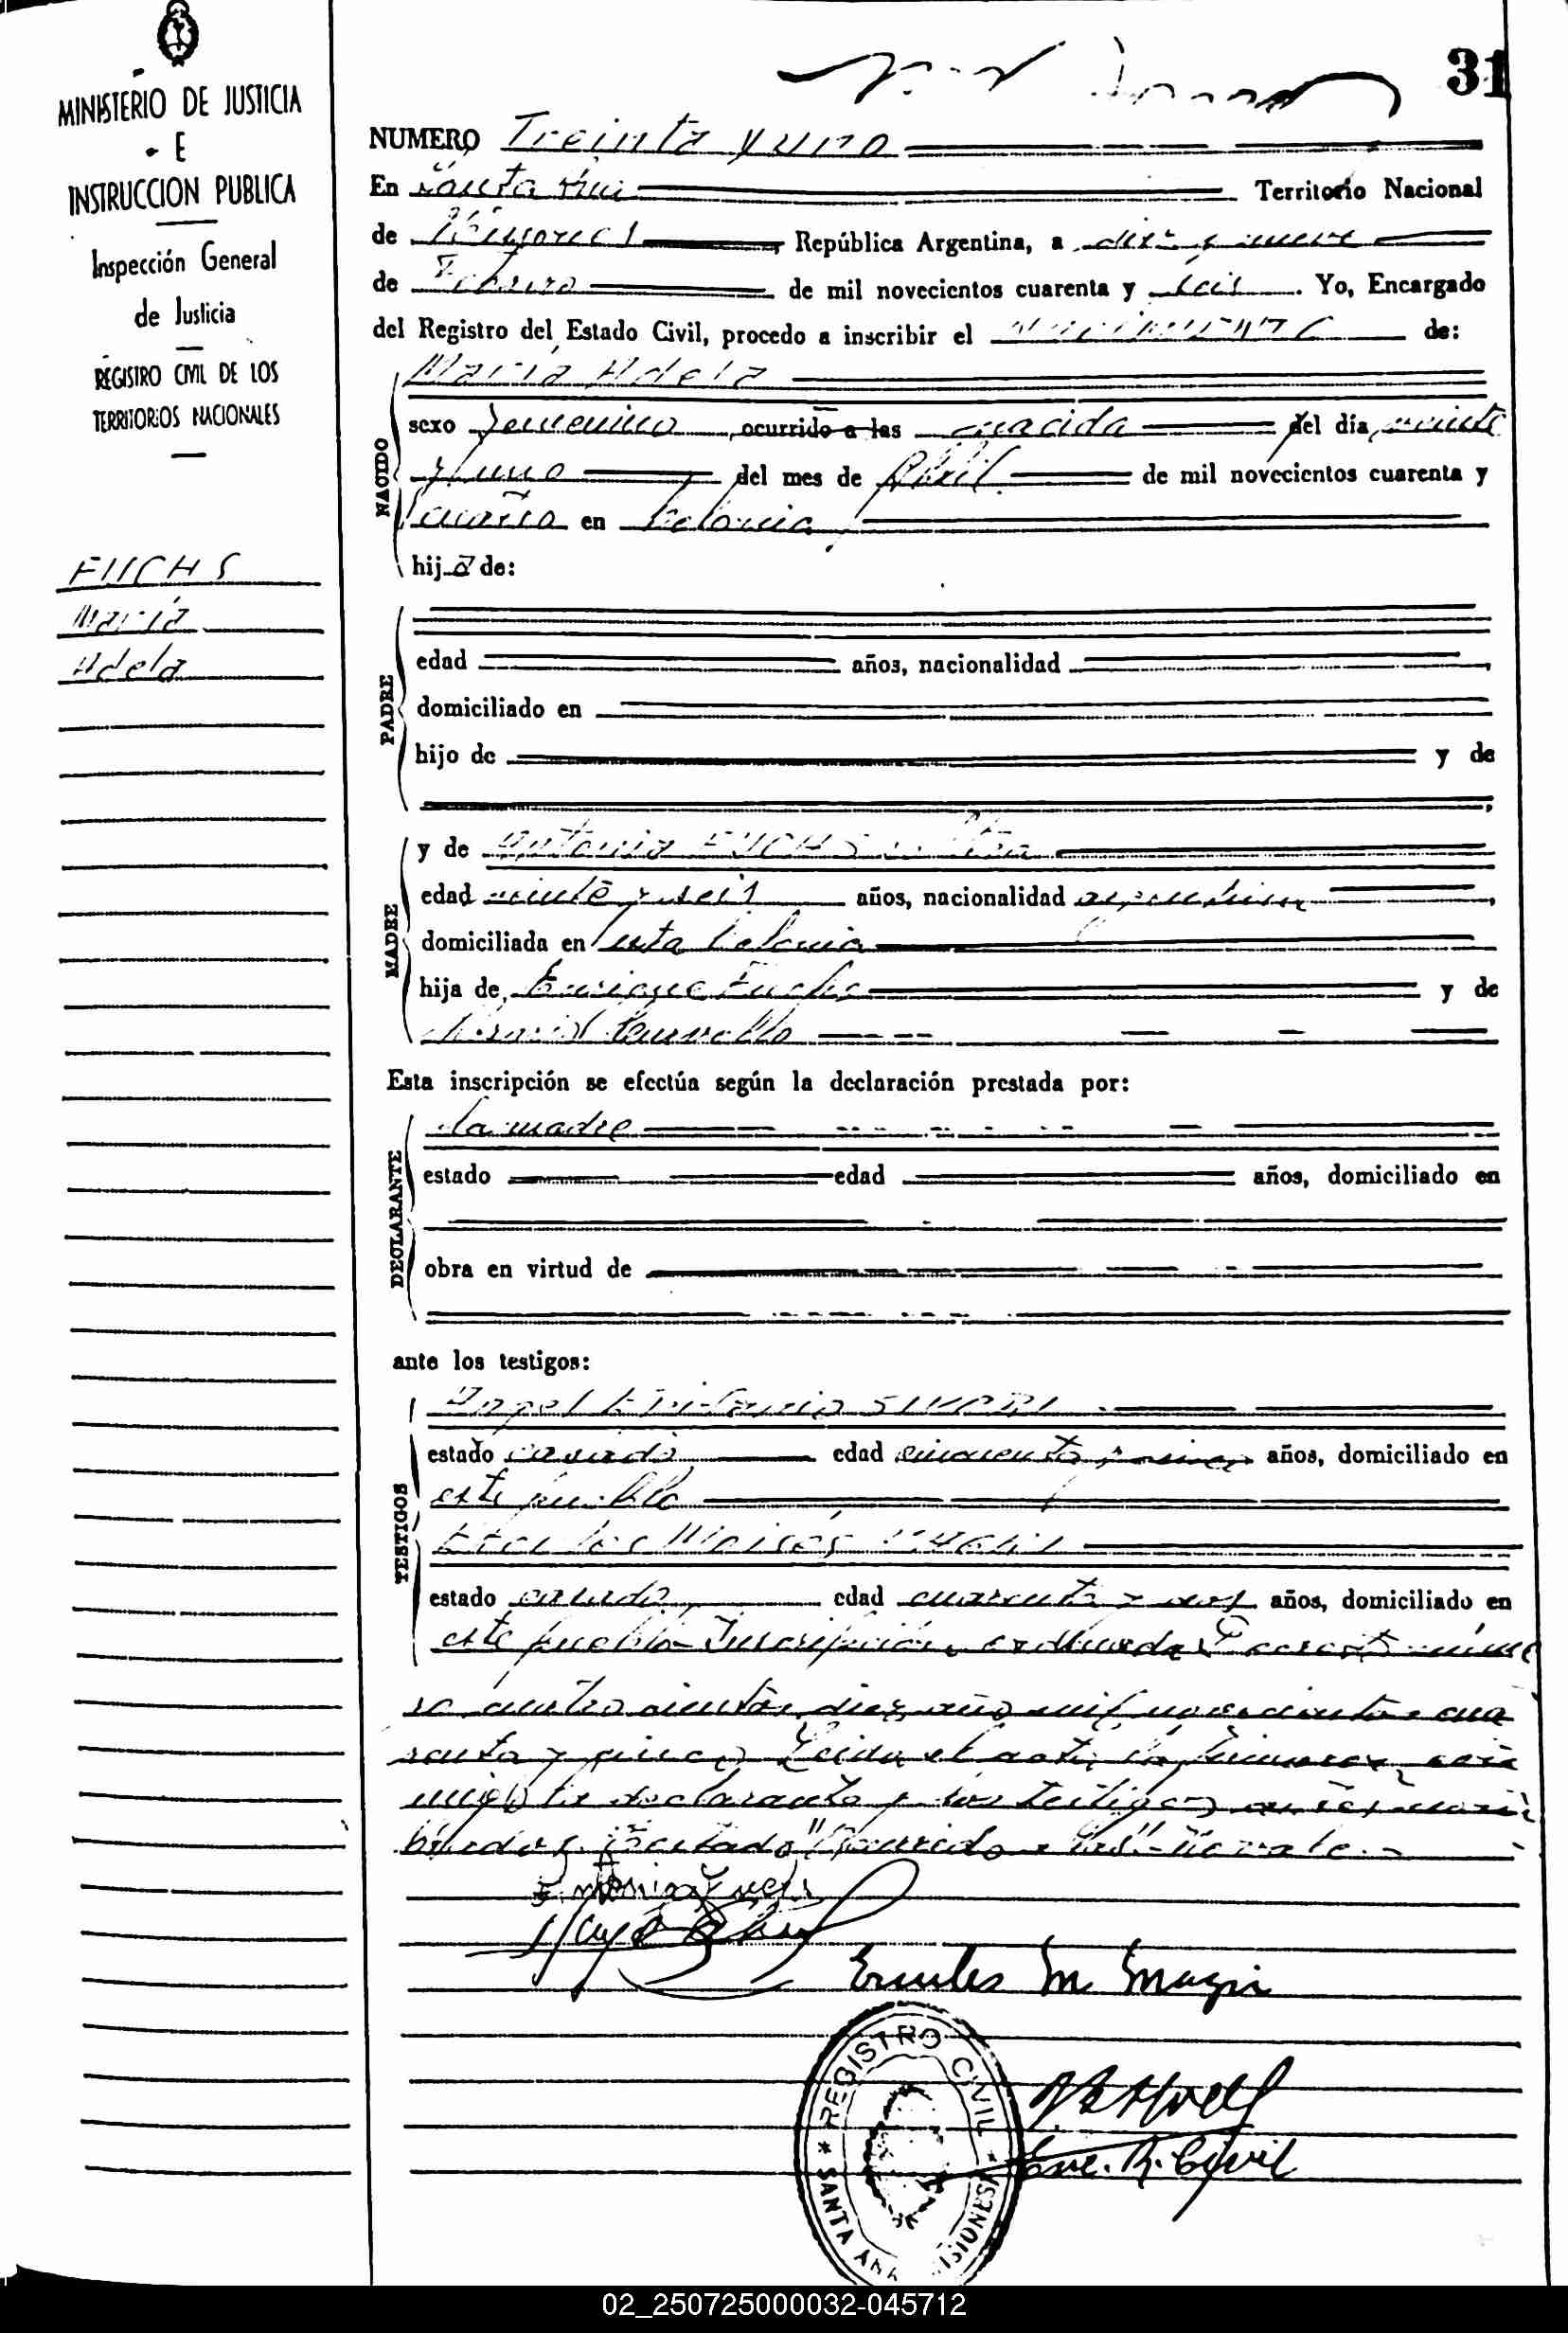 31
MINISTERIO DE JUSTICIA
E
INSTRUCCION PUBLICA
Inspección General
de Justicia
REGISTRO CIVIL DE LOS
TERRITORIOS NACIONALES
FUCHS
María
Adela
NUMERO Treinta y uno
En Santa Ana Territorio Nacional
de Misiones, República Argentina, a diez y nueve
de Febrero de mil novecientos cuarenta y seis. Yo, Encargado
del Registro del Estado Civil, procedo a inscribir el nacimiento de:
María Adela
NACIDO
sexo femenino ocurrido a las nacida del día veinte
y uno del mes de Abril de mil novecientos cuarenta y
cuatro en Colonia
hija de:
PADRE
edad años, nacionalidad
domiciliado en
hijo de y de
MADRE
y de Antonia FUCHS soltera
edad veinte y seis años, nacionalidad argentina
domiciliada en esta Colonia
hija de Enrique Fuchs y de
Esta inscripción se efectúa según la declaración prestada por:
DECLARANTE
la madre
estado edad años, domiciliado en
obra en virtud de
ante los testigos:
TESTIGOS
Angel
estado casado edad cincuenta y años, domiciliado en
este pueblo
Moisés
estado casado edad cuarenta y años, domiciliado en
este pueblo Inscripción ordenada
ro cuatrocientos diez año mil novecientos cua
renta y cinco Leida el acta la firmaron con
migo la declarante y los testigos
Testado "Ocurrido a las" No vale.
Antonia Fuchs
M. Magri
Enc. R. Civil
REGISTRO CIVIL
* SANTA ANA MISIONES *
02_250725000032-045712